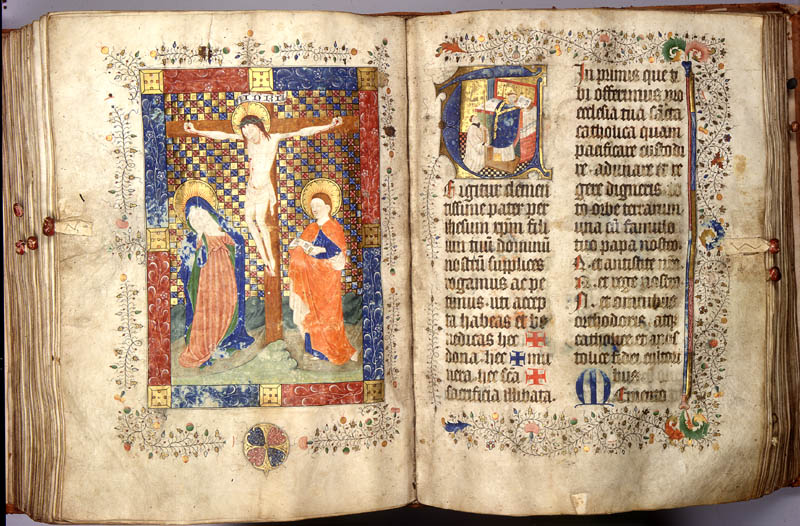 TE igitur clemen
tissime pater per
ihesum xpm fili
um tuū dominū
nostrū supplices
rogamus ac pe
timus. uti accep
ta habeas et be
nedicas hec ✠
dona. hec ✠ mu
nera. hec scā ✠
sacrificia illibata.
In primis que ti
bi offerimus pro
ecclesia tua sācta
catholica quam
pacificare custodi
re. adunare et re
gere digneris. to
to orbe terrarum
una cū famulo
tuo papa nostro
N. et antistite nrō
N. et rege nostro
N. et omnibus
orthodoxis. atqȝ
catholice et apos
tolice fidei cultori
bus.
Memento